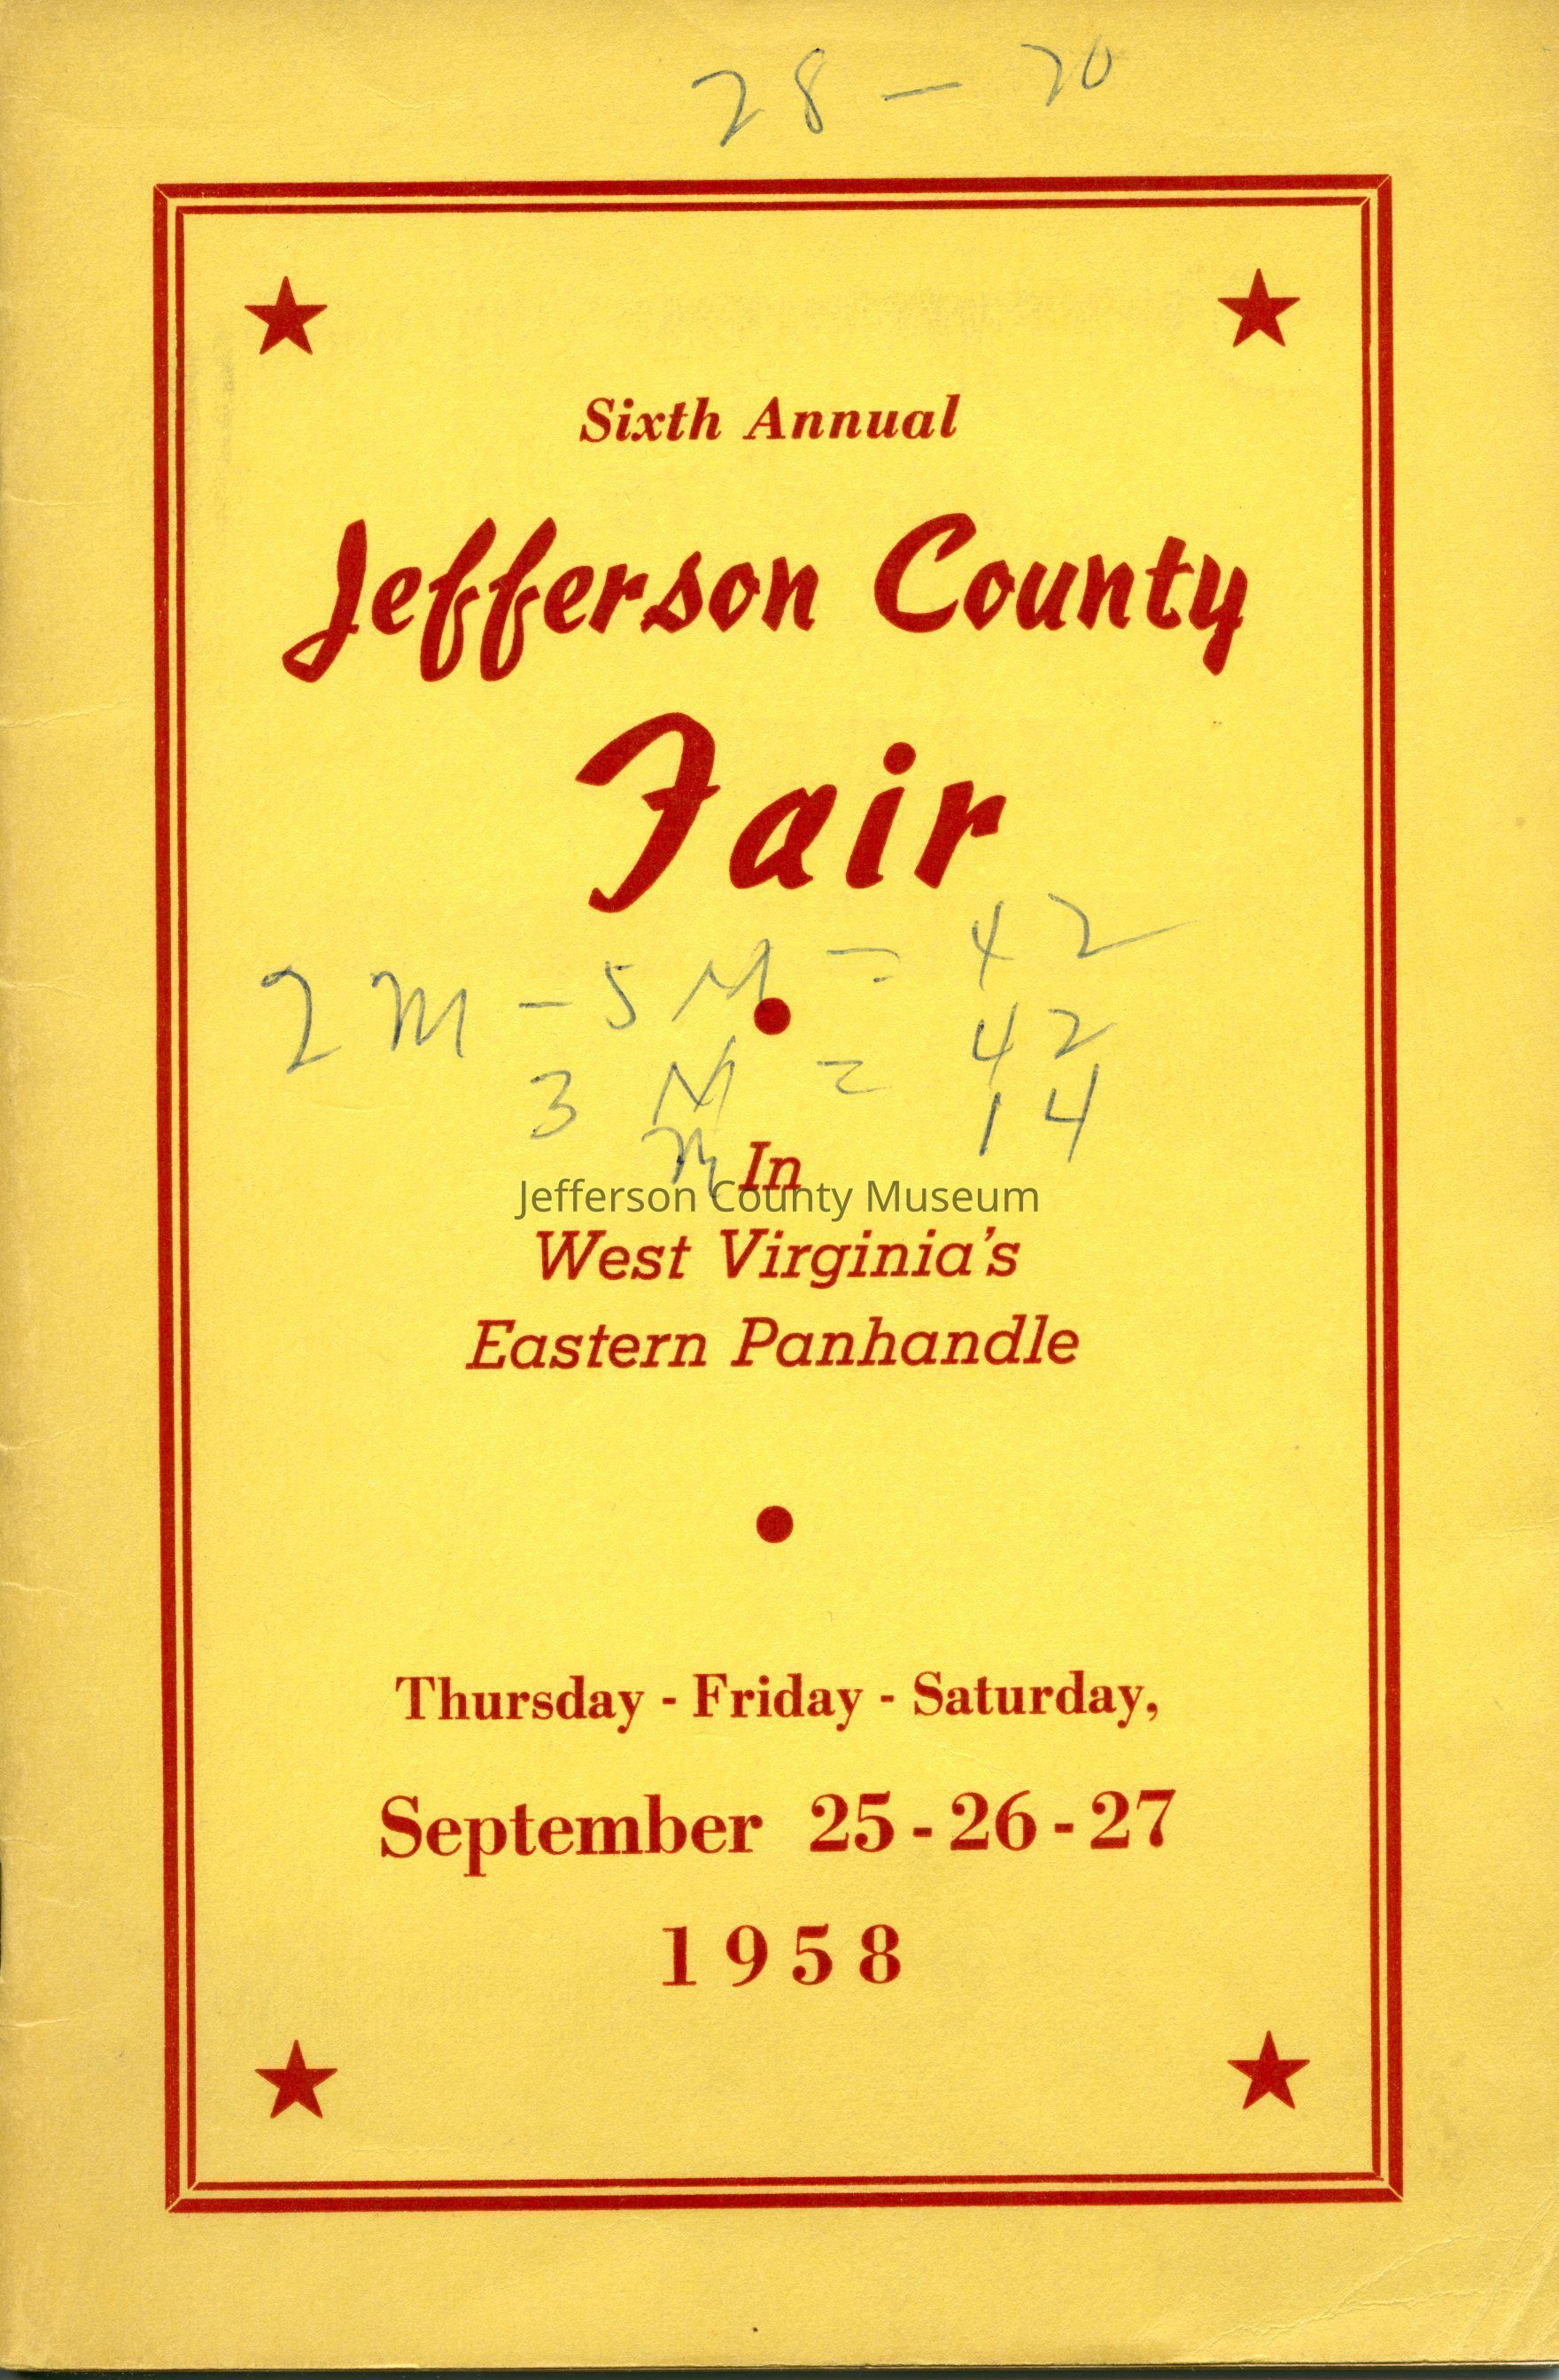 28 - 70
Sixth Annual
Jefferson County
Fair
2 M - 5 M = 42
3 M = 42
M 14
In
Jefferson County Museum
West Virginia's
Eastern Panhandle
Thursday - Friday - Saturday,
September 25 - 26 - 27
1958